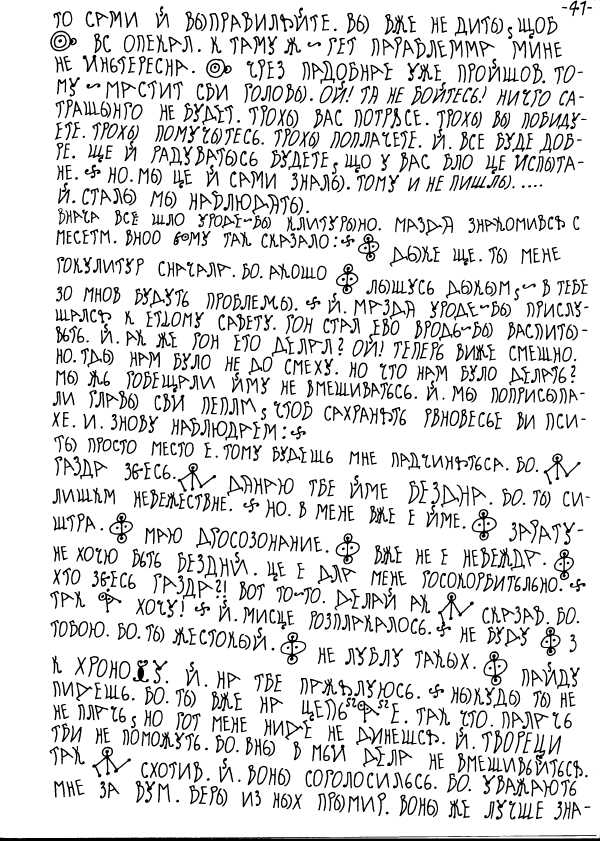 -41-
ТО САМИ Й ВЫПРАВИЛЯЙТЕ. ВЫ ВЖЕ НЕ ДИТЫ, ЩОБ
ВС ОПЕКАЛ. К ТАМУ Ж РЕТ ПАРАБЛЕММА МИНЕ
НЕ ИНЬТЕРЕСНА. ЧРЕЗ ПАДОБНАЕ УЖЕ ПРОЙШОВ. ТО-
МУ МАСТИТ СВИ ГОЛОВЫ. ОЙ! ТА НЕ БОЙТЕСЬ! НИЧГО СА-
ТРАШЫНГО НЕ БУДЕТ. ТРОХЫ ВАС ПОТРЯСЕ. ТРОХЫ ВЫ ПОБИДУ-
ЕТЕ. ТРОХЫ ПОМУЧЫТЕСЬ. ТРОХЫ ПОПЛАЧЕТЕ. Й. ВСЕ БУДЕ ДОБ-
РЕ. ЩЕ Й РАДУВАТЫСЬ БУДЕТЕ, ЩО У ВАС БЛО ЦЕ ИСПЫТА-
НЕ. НО. МЫ ЦЕ Й САМИ ЗНАЛЫ. ТОМУ И НЕ ПИШЛЫ.....
Й. СТАЛЫ МЫ НАБЛЮДАТЫ.
ВНАЧА ВСЕ ШЛО УРОДЕ-БЫ КЛИТУРЫНО. МАЗДА ЗНАКОМИВСЯ С
МЕСЕТМ. ВНОО ЕМУ ТАК СКАЗАЛО: ДЫЖЕ ЩЕ. ТЫ МЕНЕ
ГОКУЛИТУР СНАЧАЛА. БО. АКОШО ЛЫШУСЬ ДЫКЫМ, В ТЕБЕ
ЗО МНОВ БУДУТЬ ПРОБЛЕМЫ. Й. МАЗДА УРОДЕ-БЫ ПРИСЛУ-
ШАЛСЯ К ЕТДОМУ САВЕТУ. ГОН СТАЛ ЕВО ВРОДЬ-БЫ ВАСПИТЫ-
ВЬТЬ. Й. АК ЖЕ ГОН ЕТО ДЕЛАЛ? ОЙ! ТЕПЕРЬ ВИЖЕ СМЕШНО.
НО. ТДЫ НАМ БУЛО НЕ ДО СМЕХУ. НО ЧТО НАМ БУЛО ДЕЛАТЬ?
МЫ ЖЬ ГОБЕЩАЛИ ЙМУ НЕ ВМЕШИВАТЬСЬ. Й. МЫ ПОПРИСЫПА-
ЛИ ГЛАВЫ СВИ ПЕПЛМ, ЧТОБ САХРАНЯТЬ РВНОВЕСЬЕ ВИ ПСИ-
ХЕ. И. ЗНОВУ НАБЛЮДАЕМ:
ТЫ ПРОСТО МЕСТО Е. ТОМУ БУДЕШЬ МНЕ ПАДЧИНЯТЬСА. БО.
ГАЗДА ЗВЕСЬ. ДАНАЮ ТБЕ ЙМЕ БЕЗДНА. БО. ТЫ СИ-
ЛИШКМ НЕВЕЖЕСТВНЕ. НО. В МЕНЕ ВЖЕ Е ЙМЕ. ЗАРАТУ-
ШТРА. МАЮ ДРОСОЗОНАНИЕ. ВЖЕ НЕ Е НЕВЕЖДА.
НЕ ХОЧЮ БЫТЬ БЕЗДНЙ. ЦЕ Е ДЛА МЕНЕ ГОСОКОРБИТЕЛЬНО.
ХТО ЗВЕСЬ ГАЗДА?! ВОТ ТО-ТО. ДЕЛАЙ АК СКАЗАВ. БО.
ТАК ХОЧУ! Й. МИСЦЕ РОЗПЛАКАЛОСЬ. НЕ БУДУ З
ТОБОЮ. БО. ТЫ ЖЕСТОКЫЙ. НЕ ЛУБЛУ ТАКЫХ. ПАЙДУ
К ХРОНО У. Й. НА ТБЕ ПАЖАЛУЮСЬ. НЫКУДЫ ТЫ НЕ
ПИДЕШЬ. БО. ТЫ ВЖЕ НА ЦЕПЬ Е. ТАК ЧТО. ПАЛАЧЬ
НЕ ПЛАЧЬ, НО ГОТ МЕНЕ НИДЕ НЕ ДИНЕШСЯ. Й. ТВОРЕЦИ
ТБИ НЕ ПОМОЖУТЬ. БО. ВНЫ В МЬИ ДЕЛА НЕ ВМЕШИВЬЙТЬСЯ.
ТАК СХОТИВ. Й. ВОНЫ СОГОЛОСИЛЬСЬ. БО. УВАЖАЮТЬ
МНЕ ЗА ВУМ. БЕРЫ ИЗ НЫХ ПРЫМИР. ВОНЫ ЖЕ ЛУЧШЕ ЗНА-